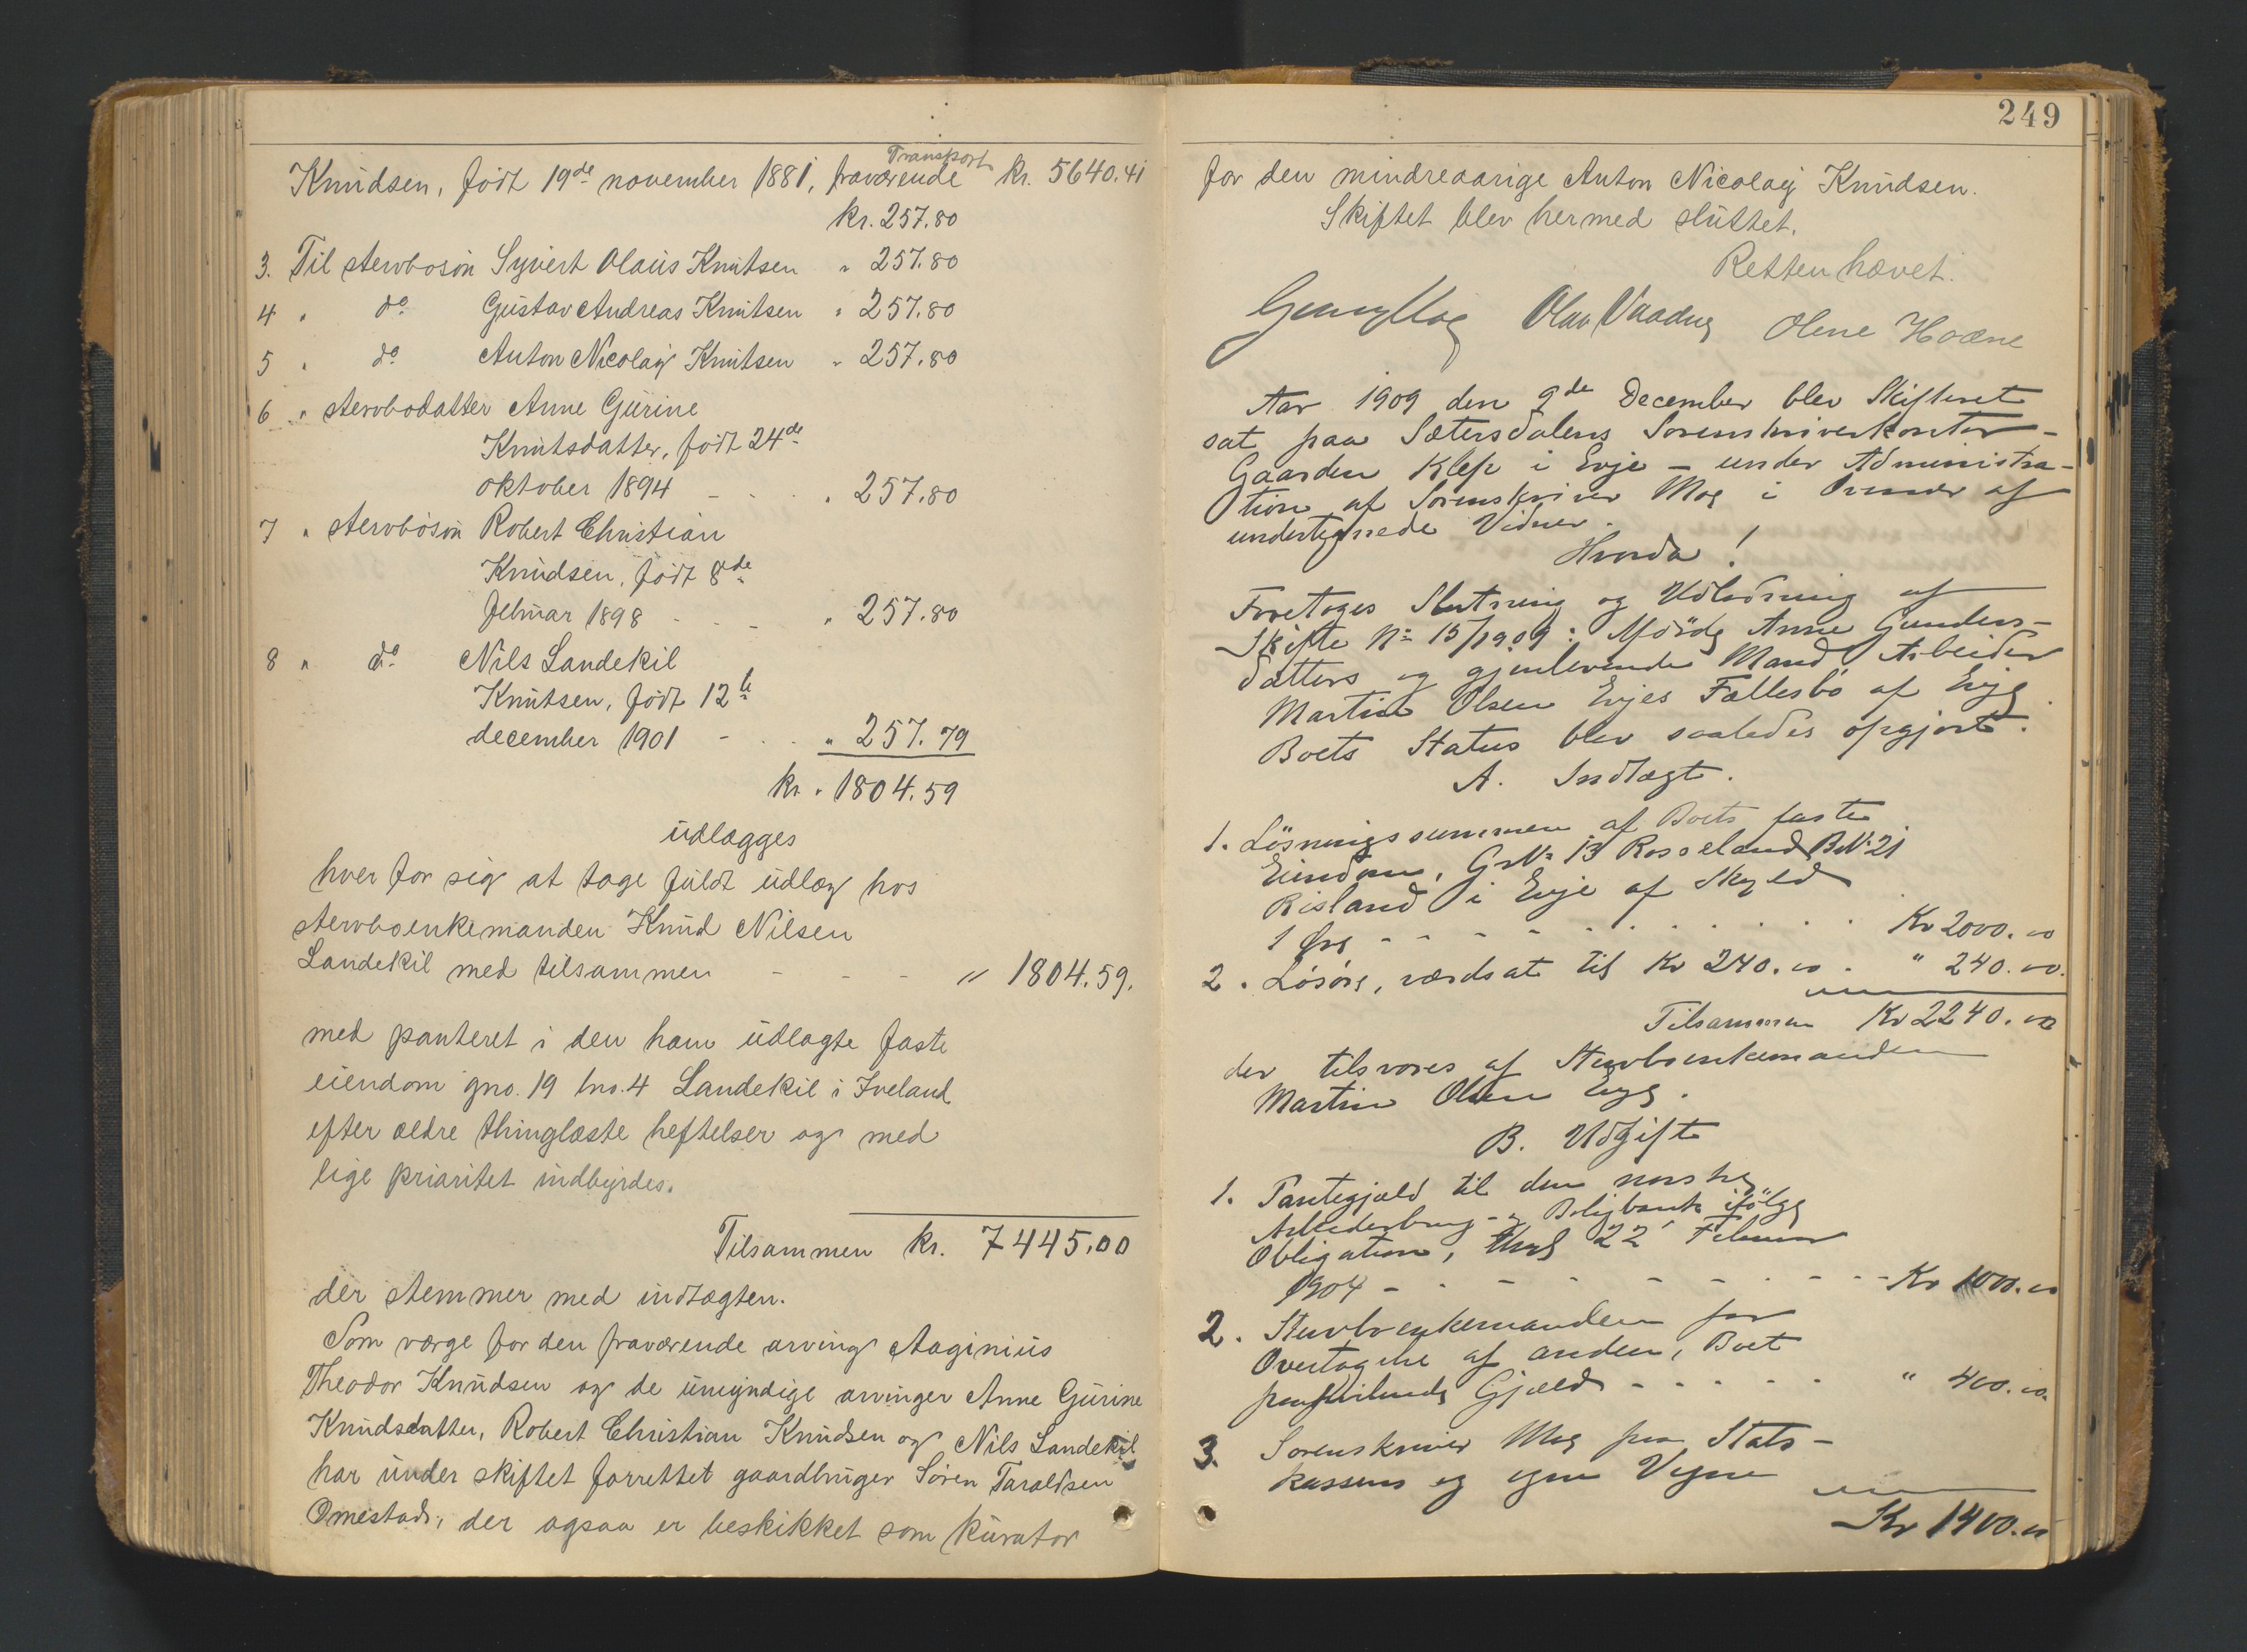 Transport
Knudsen, født 19de november 1881, fraværende kr. 5640.41
kr. 257.80
3. Til stervbosøn Syvert Olaus Knutsen " 257.80
4 " do Gustav Andreas Knutsen " 257.80
5 " do Anton Nicolay Knutsen " 257.80
6 " stervbodatter Anne Gurine
Knutsdatter, født 24de
oktober 1894 - . . " 257.80
7 " stervbosøn Robert Christian
Knudsen, født 8de
februar 1898 - - - " 257.80
8 " do Nils Landekil
Knutsen, født 12te
december 1901 - . . " 257.79
kr. 1804.59
udlægges
hver for sig at tage fuldt udlæg hos
stervboenkemanden Knud Nilsen
Landekil med tilsammen - - - " 1804.59.
med panteret i den ham udlagte faste
eiendom gno. 19 bno. 4 Landekil i Iveland
efter ældre thinglæste heftelser og med
lige prioritet indbyrdes.
Tilsammen kr. 7445.00
der stemmer med indtægten.
Som værge for den fraværende arving Aaginius
Theodor Knudsen og de umyndige arvinger Anne Gurine
Knudsdatter, Robert Christian Knudsen og Nils Landekil
har under skiftet forrettet gaardbruger Søren Taraldsen
Omestad, der ogsaa er beskikket som kurator
249
for den mindreaarige Anton Nicolay Knudsen.
Skiftet blev hermed sluttet.
Retten hævet.
Olene Hodne
Aar 1909 den 9de December blev Skifteret
sat paa Sætersdalens Sorenskriverkontor -
Gaarden Klep i Evje - under Administra-
tion af Sorenskriver Moe i Overvær af
undertegnede Vidner.
Hvorda!
Foretoges Slutning og Udlodning af
Skifte No 15/1909: Afdøde Anne Gunders-
datters og gjenlevende Mand Arbeider
Martin Olsen Evjes Fællesbo af Evje.
Boets Status blev saaledes opgjort.
A. Indtægt.
1. Løsningssummen af Boets faste
Eiendom, GNo 13 Rosseland BNo 21
Risland i Evje af Skyld
1 Øre - - - - - - - Kr 2000.00
2. Løsøre, værdsat til Kr 240.00 . " 240.00.
Tilsammen Kr 2240.00
der tilsvares af Stervboenkemanden
Martin Olsen Evje.
B. Udgift
1. Pantegjæld til den norske
Arbeiderbrug- og Boligbank ifølge
Obligation, thgl 22 Februar
1904 - - - - - - - - Kr 1000.00
2. Stervboenkemanden for
Overtagelse af anden, Boet
paahvilende Gjæld - - - - - " 400.00.
3. Sorenskriver Moe paa Stats-
kassens og egne Vegne
Kr 1400.00